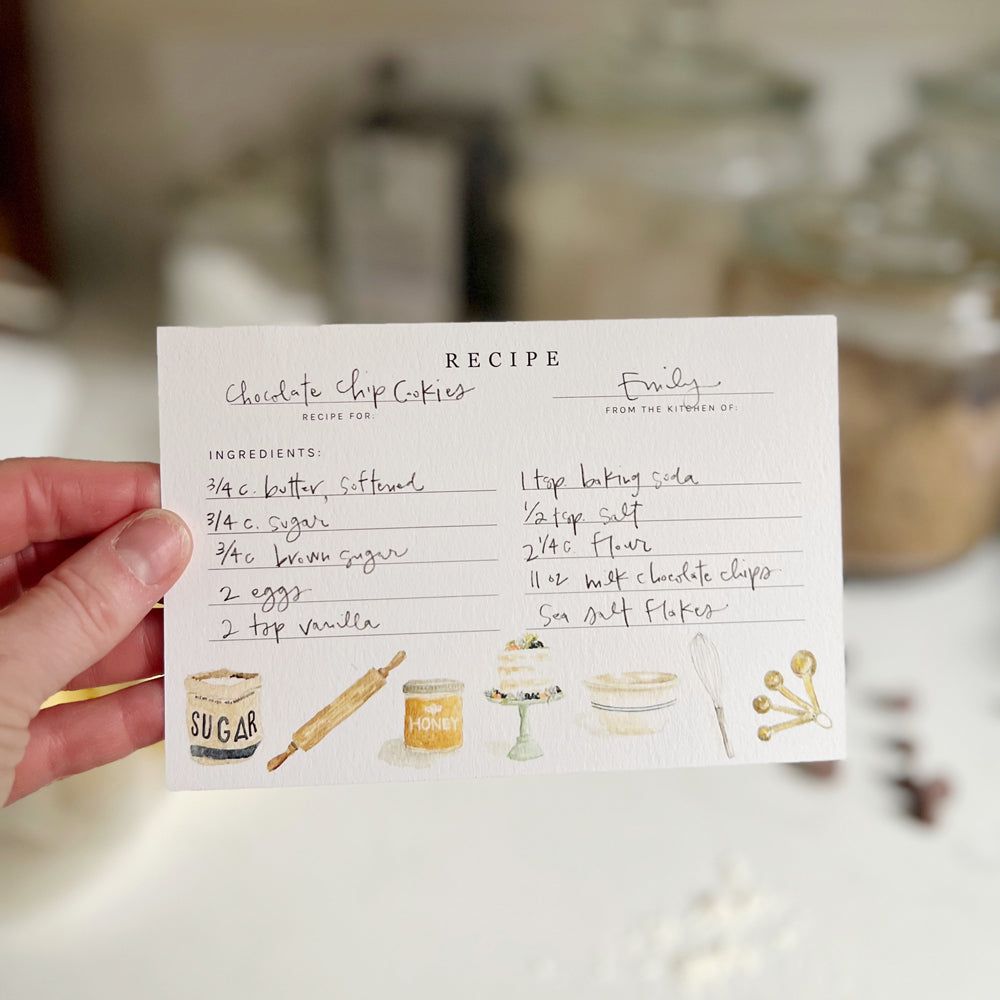 RECIPE
Chocolate Chip Cookies
RECIPE FOR:
Emily
FROM THE KITCHEN OF:
INGREDIENTS:
3/4 c. butter, softened
3/4 c. sugar
3/4 c brown sugar
2 eggs
2 tsp vanilla
1 tsp. baking soda
1/2 tsp. salt
2 1/4 c. flour
11 oz milk chocolate chips
Sea salt flakes
SUGAR
HONEY